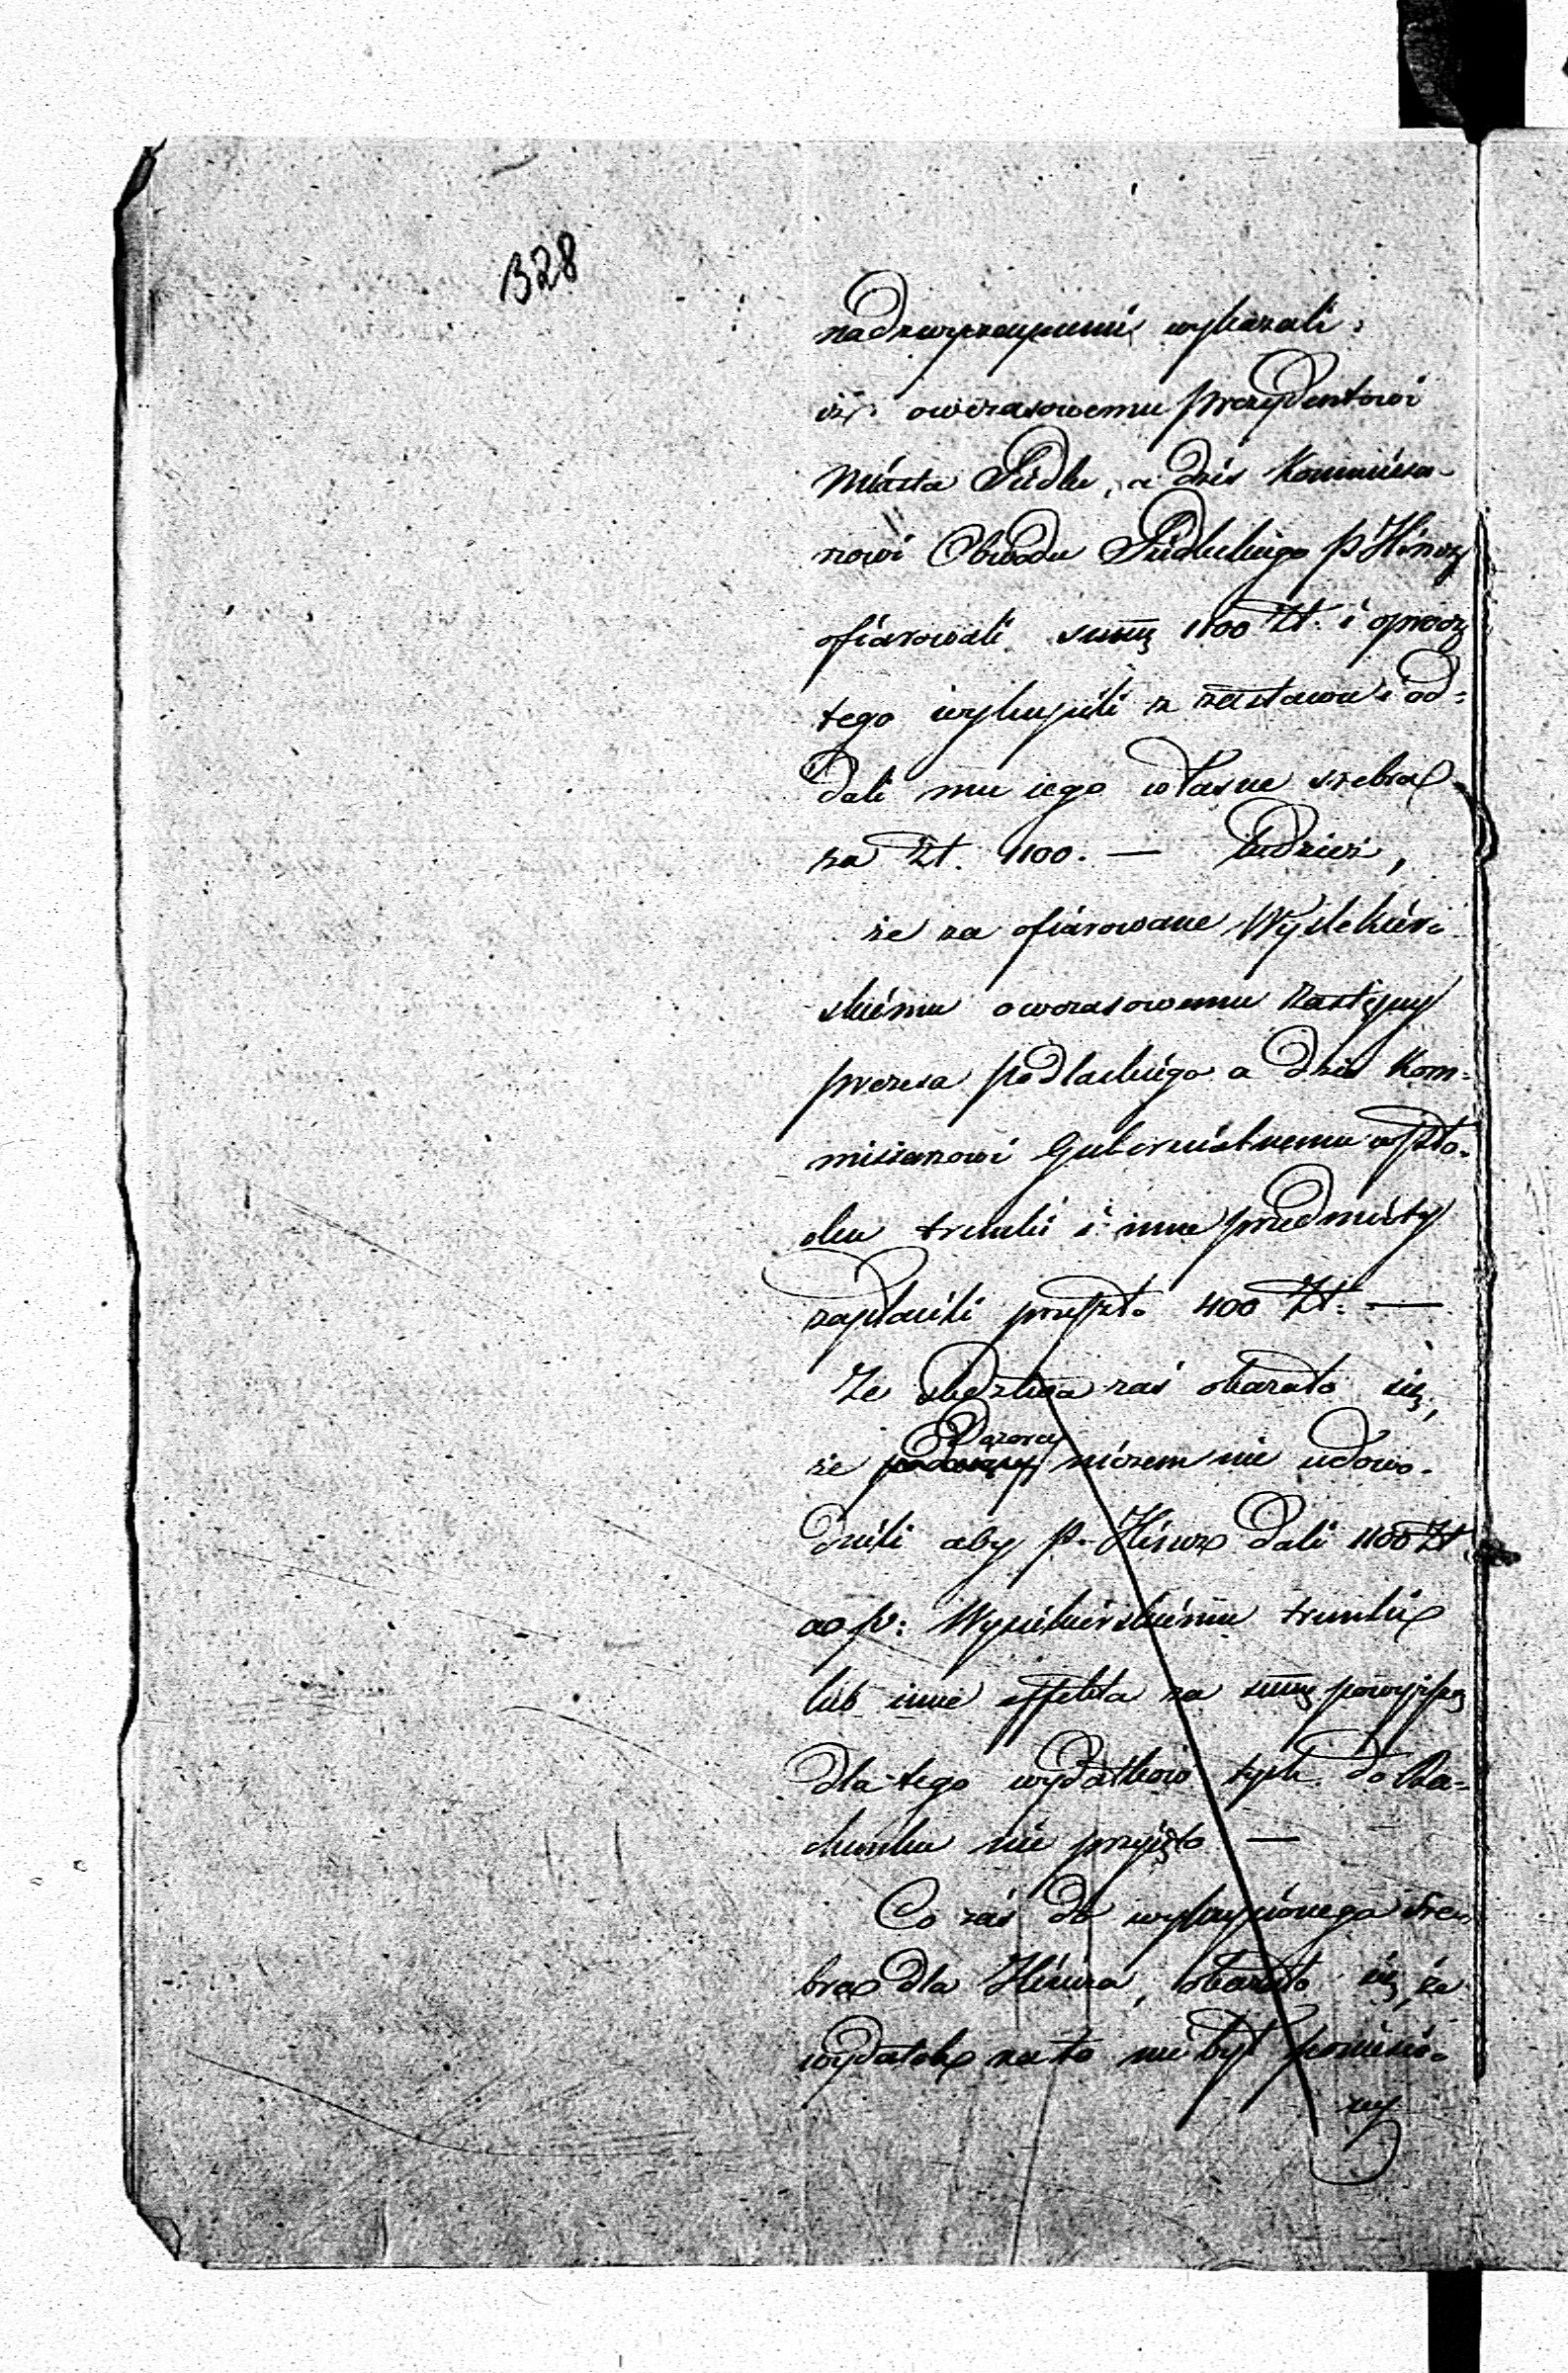 328
wykazali:
iż owczasowemu Prezydentowi
Miasta Siedlec, a dziś Kommissa-
rzowi Obwodu Siedleckiego P Hincz
ofiarowali summę 1100 Zł. i oprócz
tego wykupili z zastawu i od-
dali mu iego własne srebra
za Zł. 1100. — tudzież,
że za ofiarowane
skiemu owczasowemu Zastępcy
prezesa podlaskiego a dziś Kom-
missarzowi Gubernialnemu w Pło-
cku trunki i inne przedmioty
zapłacili przeszło 400 Zł. —
Ze śledztwa zaś okazało się,
że Dozorcy niczem nie udowo-
dnili aby P. Hincz dali 1100 Zł
a P: trunki
lub inne effekta za summę powyższą
dla tego wydatków tych do Ra-
chunku nie przyięto —
Co zaś do wykupionego sre-
bra dla Hincza, okazało się, że
wydatek na to nie był poniesio-
ny